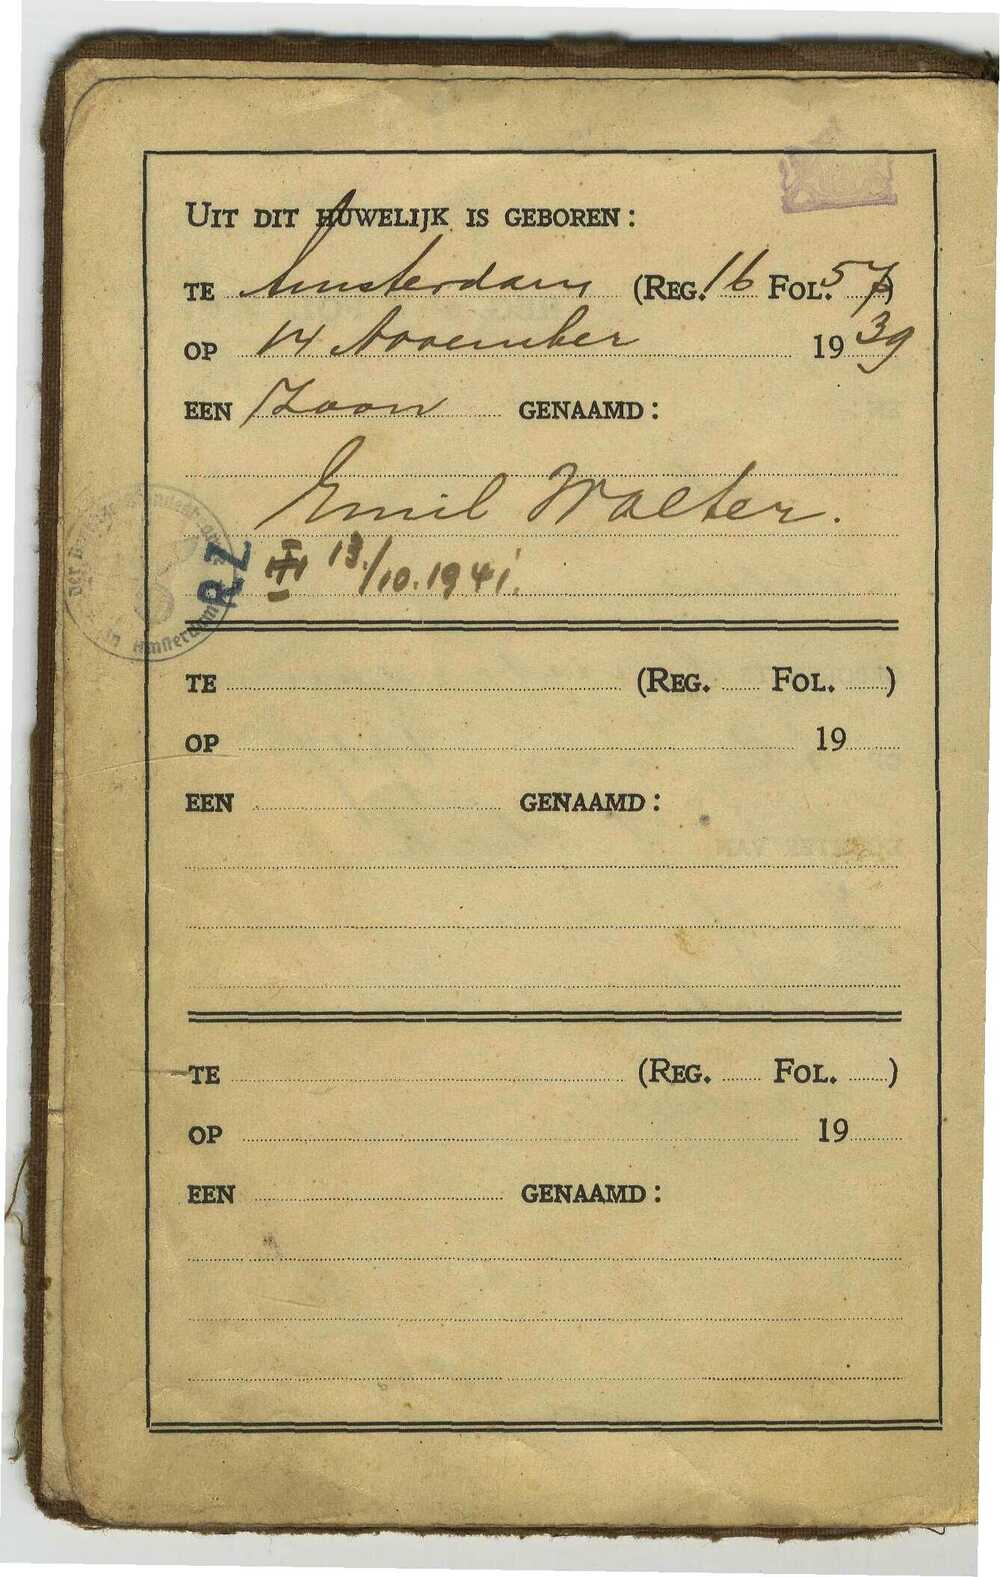 UIT DIT HUWELIJK IS GEBOREN:
TE Amsterdam (REG. 16 FOL. 57)
OP 14 November 1939
EEN Zoon GENAAMD:
Emil Walter.
RZ III 13./10.1941.
in Amsterdam
TE (REG. FOL. )
OP 19
EEN GENAAMD:
TE (REG. FOL. )
OP 19
EEN GENAAMD: